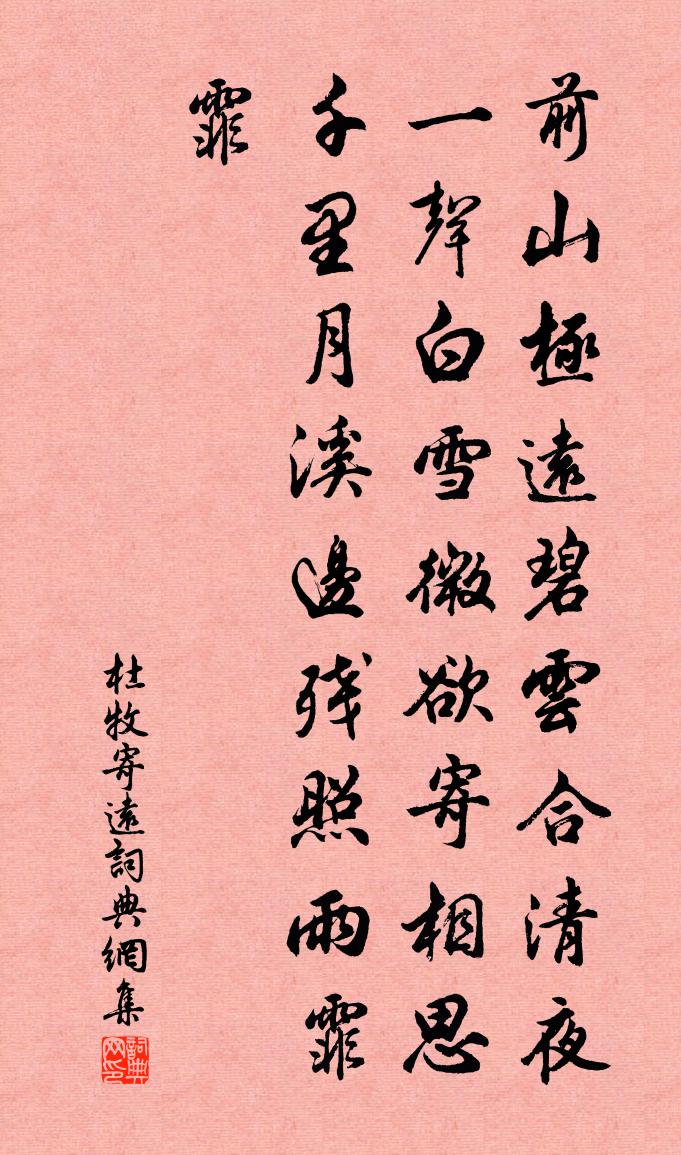 前山極遠碧雲合清夜
一聲白雪微欲寄相思
千里月溪邊殘照雨霏
霏
杜牧寄遠詞典網集
詞典网印